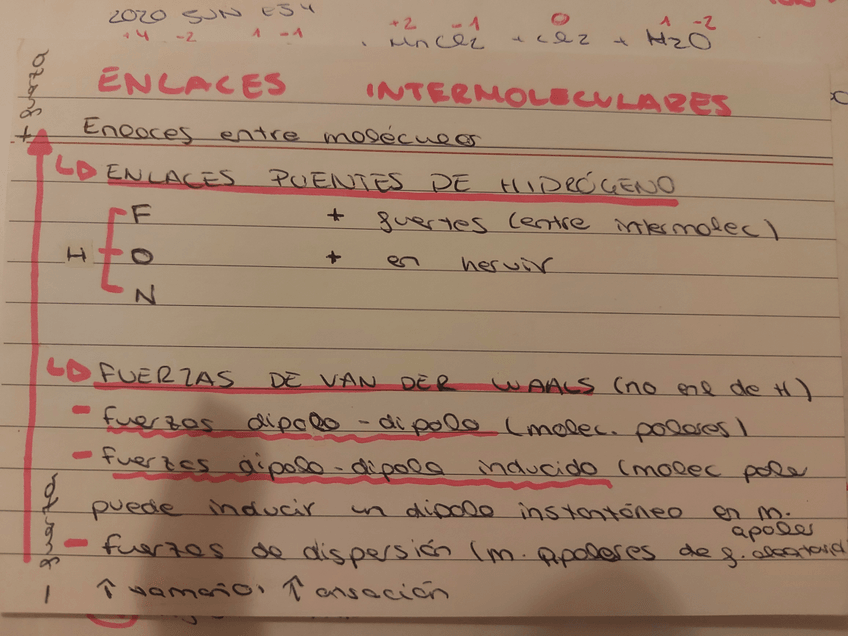 2020 JUN E54
+4 -2 1 -1 +2 -1 0 1 -2
MnCl2 + Cl2 + H2O
ENLACES INTERMOLECULARES
Enlaces entre moléculas
ENLACES PUENTES DE HIDRÓGENO
F + fuertes (entre intermolec)
H O + en hervir
N
FUERZAS DE VAN DER WAALS (no enl de H)
- fuerzas dipolo-dipolo (molec. polares)
- fuerzas dipolo-dipolo inducido (molec pola
puede inducir un dipolo instantáneo en m.
apolar
- fuerzas de dispersión (m. apolares de f.
↑ tamaño, ↑
+ fuerza
- fuerza